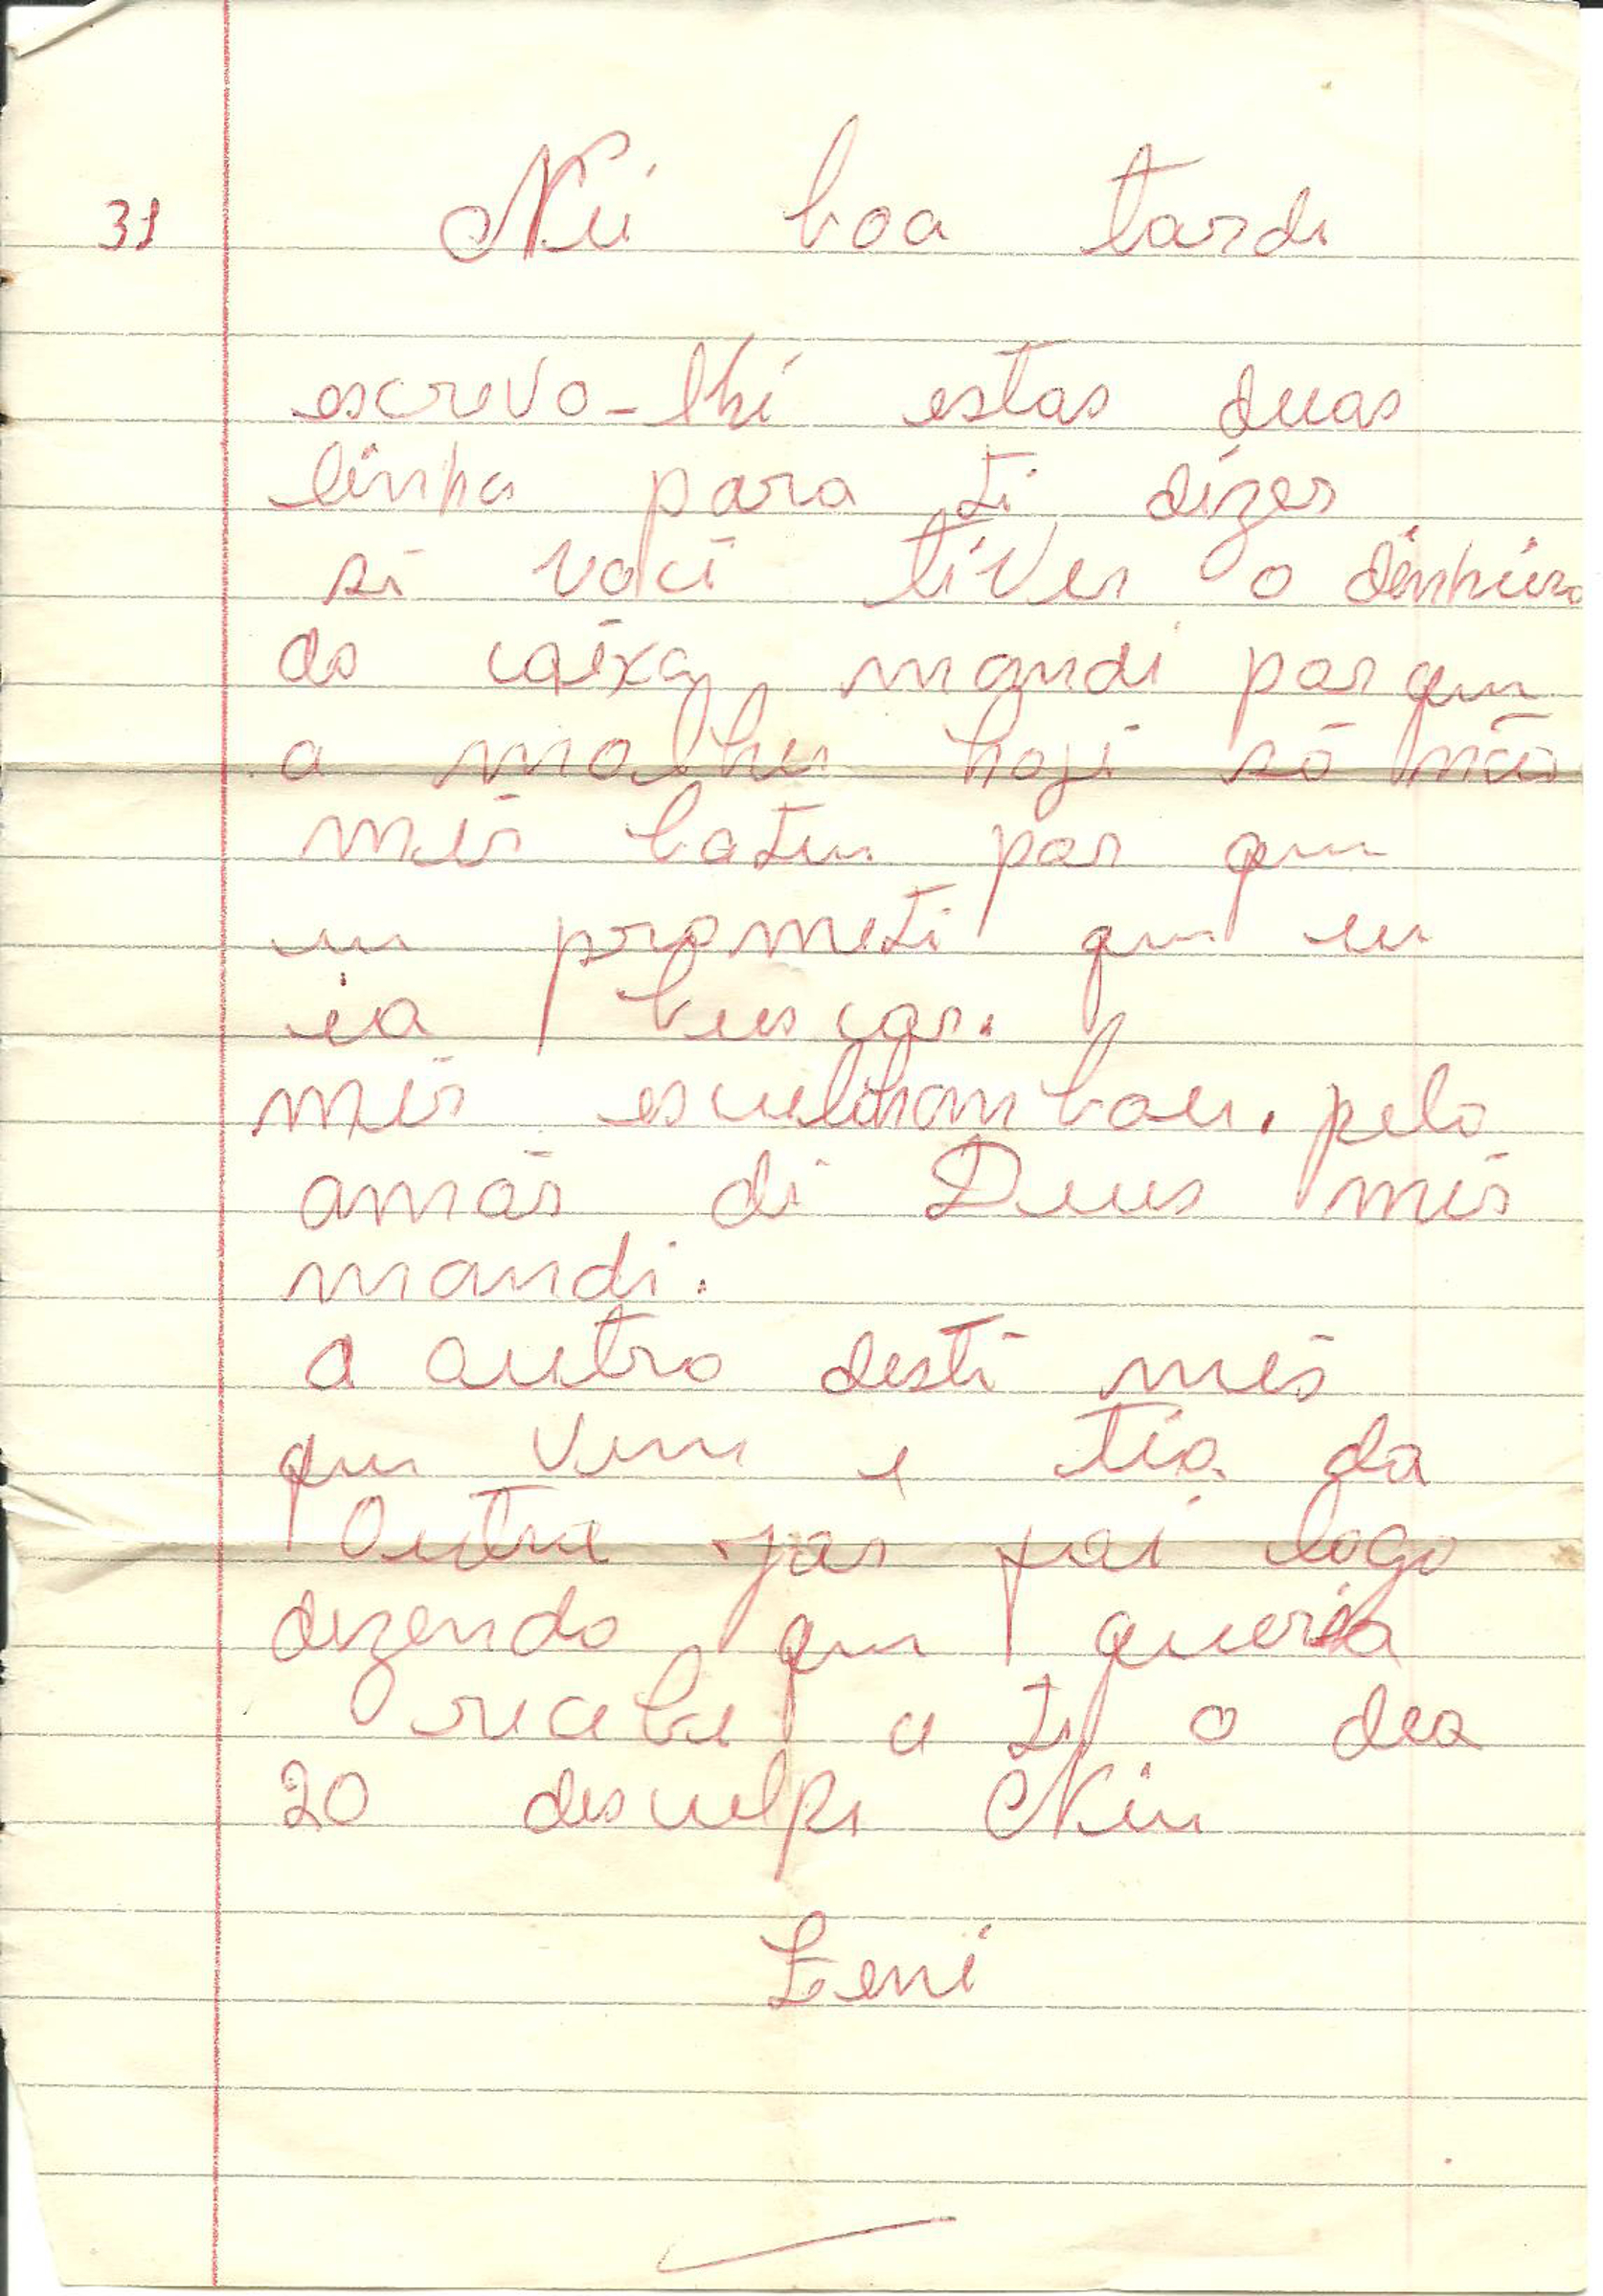 31 Nei boa tardi
escrevo-lhi estas duas
linha para ti dizer
si você tiver o dinheiro
do caixa mandi por que
a molher hoji só não
mēr bateu por que
eu prometi que eu
ia buscar.
mēr esculhambou. pelo
amōr di Deus mēr
mandi.
a outro desti mês
que vem e tia da
Outra jar foi logo
dizendo que queria
recebe a ti o dia
20 desculpi Neu
Zeni